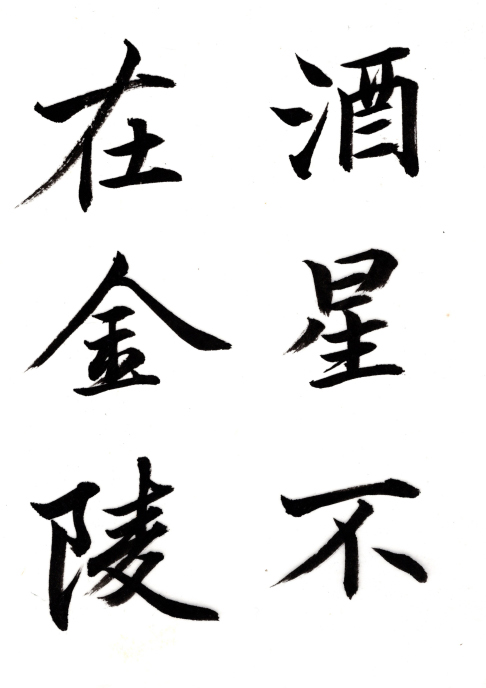 酒星不
在金陵